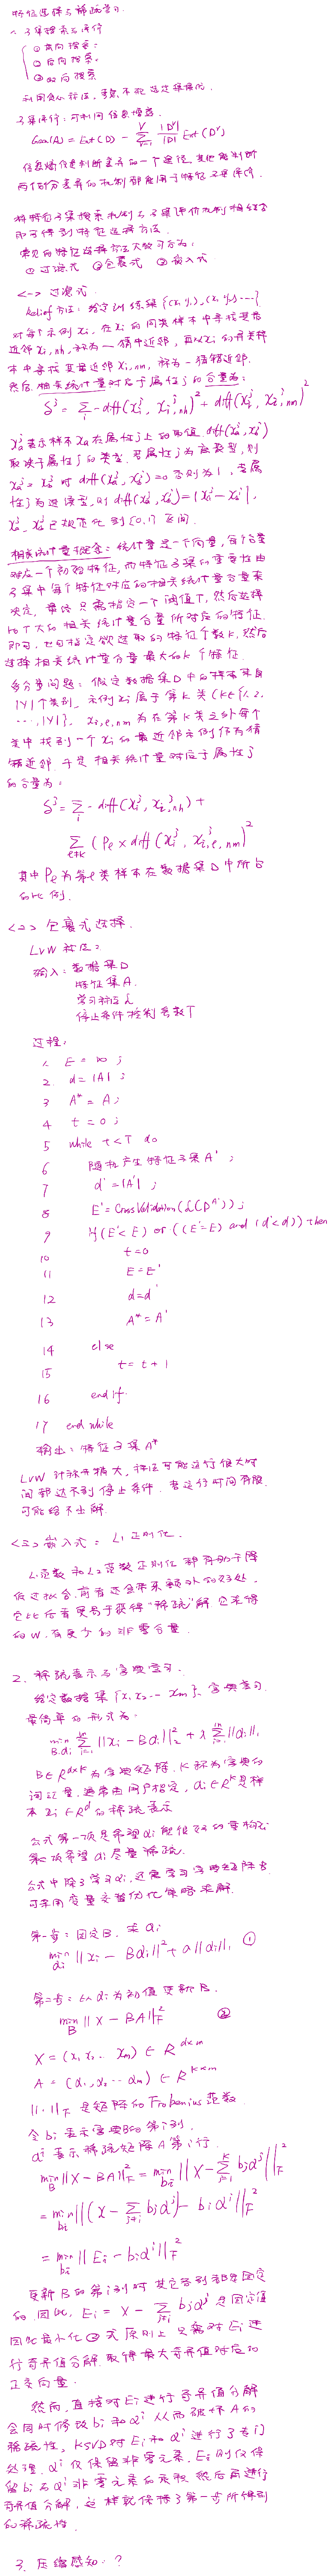 特征选择与稀疏学习.
1. 子集搜索与评价
① 前向搜索:
② 后向搜索.
③ 双向搜索
利用贪心算法, 考虑不全, 选定最优的.
子集评价: 可利用信息增益.
Gain(A) = Ent(D) - ∑_{v=1}^{V} |D^v|/|D| Ent(D^v)
信息熵仅是判断差异的一个途径, 其他能判断
两个划分差异的机制都能用于特征子集评价.
将特征子集搜索机制与子集评价机制相结合
即可得到特征选择方法.
常见的特征选择方法大致可分为:
① 过滤式 ② 包裹式 ③ 嵌入式.
<一> 过滤式.
Relief 方法: 给定训练集 {(x₁,y₁),(x₂,y₂)...}
对每个示例 xᵢ, 在 xᵢ 的同类样本中寻找其最
近邻 xᵢ,nh, 称为一猜中近邻, 再从 xᵢ 的异类样
本中寻找其最近邻 xᵢ,nm, 称为一猜错近邻.
然后, 相关统计量对应于属性 j 的分量为:
δ^j = ∑_i -diff(x_i^j, x_{i,nh}^j)² + diff(x_i^j, x_{i,nm}^j)²
x_a^j 表示样本 xₐ 在属性 j 上的取值. diff(x_a^j, x_b^j)
取决于属性 j 的类型. 若属性 j 为离散型, 则
x_a^j = x_b^j 时 diff(x_a^j, x_b^j) = 0 否则为 1, 若属
性 j 为连续型, 则 diff(x_a^j, x_b^j) = |x_a^j - x_b^j|.
x_a^j, x_b^j 已规范化到 [0,1] 区间.
相关统计量概念: 统计量是一个向量, 每个分量
对应一个初始特征, 而特征子集的重要性由
子集中每个特征对应的相关统计量分量来
决定. 最终只需指定一个阈值 T, 然后选择
比 T 大的相关统计量分量所对应的特征
即可, 也可指定欲选取的特征个数 k, 然后
选择相关统计量分量最大的 k 个特征.
多分类问题: 假定数据集 D 中的样本来自
|Y| 个类别. 示例 xᵢ 属于第 k 类 (k∈{1, 2,
..., |Y|}, xᵢ,ℓ,nm 为在第 k 类之外每个
类中找到一个 xᵢ 的最近邻示例作为猜
错近邻. 于是相关统计量对应于属性 j
的分量为:
δ^j = ∑_i -diff(x_i^j, x_{i,nh}^j) +
∑_{ℓ≠k} (P_ℓ × diff(x_i^j, x_{i,ℓ,nm}^j)²
其中 P_ℓ 为第 ℓ 类样本在数据集 D 中所占
的比例.
<二> 包裹式选择.
LVW 算法:
输入: 数据集 D
特征集 A.
学习算法 L
停止条件控制参数 T
过程:
1. E = ∞ ;
2. d = |A| ;
3 A* = A;
4 t = 0 ;
5 while t < T do
6 随机产生特征子集 A' ;
7 d' = |A'| ;
8 E' = CrossValidation(L(D^{A'}));
9 if (E' < E) or ((E' = E) and (d' < d)) then
10 t = 0
11 E = E'
12 d = d'
13 A* = A'
14 else
15 t = t + 1
16 end if.
17 end while
输出: 特征子集 A*
LVW 计算开销大, 算法可能运行很大时
间都达不到停止条件. 若运行时间有限,
可能给不出解.
<三> 嵌入式: L₁ 正则化.
L₁ 范数和 L₂ 范数正则化都有助于降
低过拟合, 前者还会带来额外的好处,
它比后者更易于获得“稀疏”解, 即求得
的 w, 有更少的非零分量.
2. 稀疏表示与字典学习.
给定数据集 {x₁, x₂ ... x_m}, 字典学习
最简单的形式为.
min_{B,αᵢ} ∑_{i=1}^{m} ||xᵢ - Bαᵢ||₂² + λ ∑_{i=1}^{m} ||αᵢ||₁
B∈R^{d×k} 为字典矩阵, k 称为字典的
词汇量, 通常由用户指定, αᵢ∈R^k 是样
本 xᵢ∈R^d 的稀疏表示
公式第一项是希望 αᵢ 能很好的重构 xᵢ
第二项希望 αᵢ 尽量稀疏.
公式中除了学习 αᵢ, 还需学习字典矩阵 B
可采用变量交替优化策略求解.
第一步: 固定 B. 求 αᵢ
min_{αᵢ} ||xᵢ - Bαᵢ||² + λ||αᵢ||₁ ①
第二步: 以 αᵢ 为初值更新 B.
min_B ||X - BA||_F² ②
X = (x₁, x₂ ... x_m) ∈ R^{d×m}
A = (α₁, α₂ ... α_m) ∈ R^{k×m}
||·||_F 是矩阵的 Frobenius 范数
令 bᵢ 表示字典 B 的第 i 列.
α^i 表示稀疏矩阵 A 第 i 行.
min_B ||X - BA||_F² = min_{bᵢ} ||X - ∑_{j=1}^{k} b_jα^j||_F²
= min_{bᵢ} ||(X - ∑_{j≠i} b_jα^j) - bᵢα^i||_F²
= min_{bᵢ} ||Eᵢ - bᵢα^i||_F²
更新 B 的第 i 列时, 其它各列都是固定
的. 因此, Eᵢ = X - ∑_{j≠i} b_jα^j 是固定值
因此最小化②式原则上只需对 Eᵢ 进
行奇异值分解. 取得最大奇异值对应的
正交向量.
然而, 直接对 Eᵢ 进行奇异值分解
会同时修改 bᵢ 和 α^i 从而破坏 A 的
稀疏性, KSVD 对 Eᵢ 和 α^i 进行了专门
处理. α^i 仅保留非零元素, Eᵢ 则仅保
留 bᵢ 与 α^i 非零元素的乘积. 然后再进行
奇异值分解, 这样就保持了第一步所得到
的稀疏性.
3. 压缩感知: ?